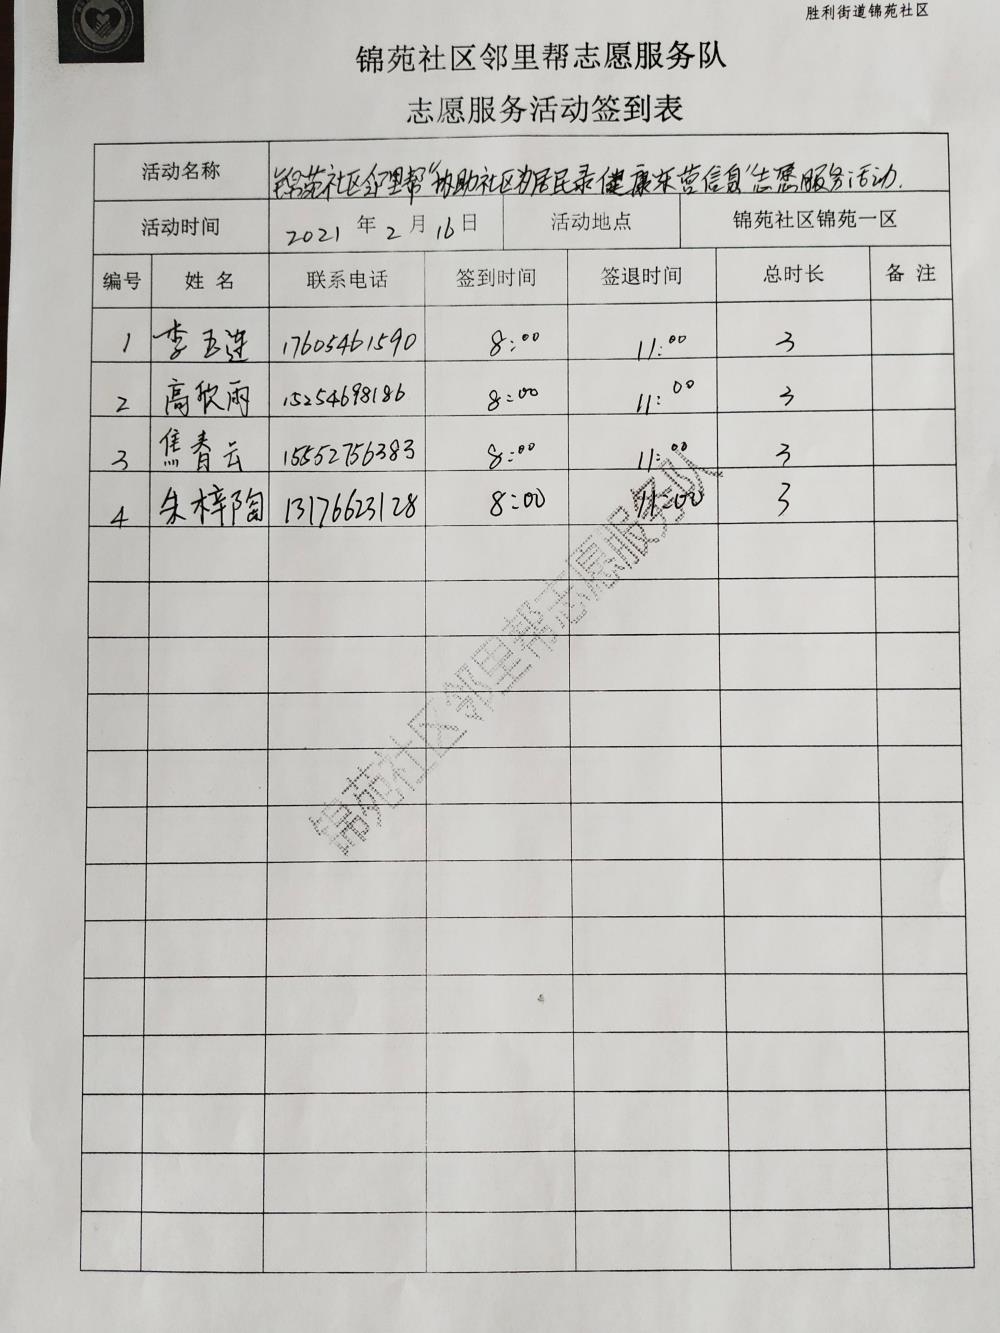 胜利街道锦苑社区
锦苑社区邻里帮志愿服务队
志愿服务活动签到表
活动名称 锦苑社区邻里帮"协助社区为居民录健康东营信息"志愿服务活动.
活动时间 2021 年 2 月 16 日 活动地点 锦苑社区锦苑一区
编号 姓 名 联系电话 签到时间 签退时间 总时长 备 注
1 李玉莲 17605461590 8:00 11:00 3
2 高欣雨 15254698186 8:00 11:00 3
3 焦春云 15552756383 8:00 11:00 3
4 朱梓陶 13176623128 8:00 11:00 3
锦苑社区邻里帮志愿服务队